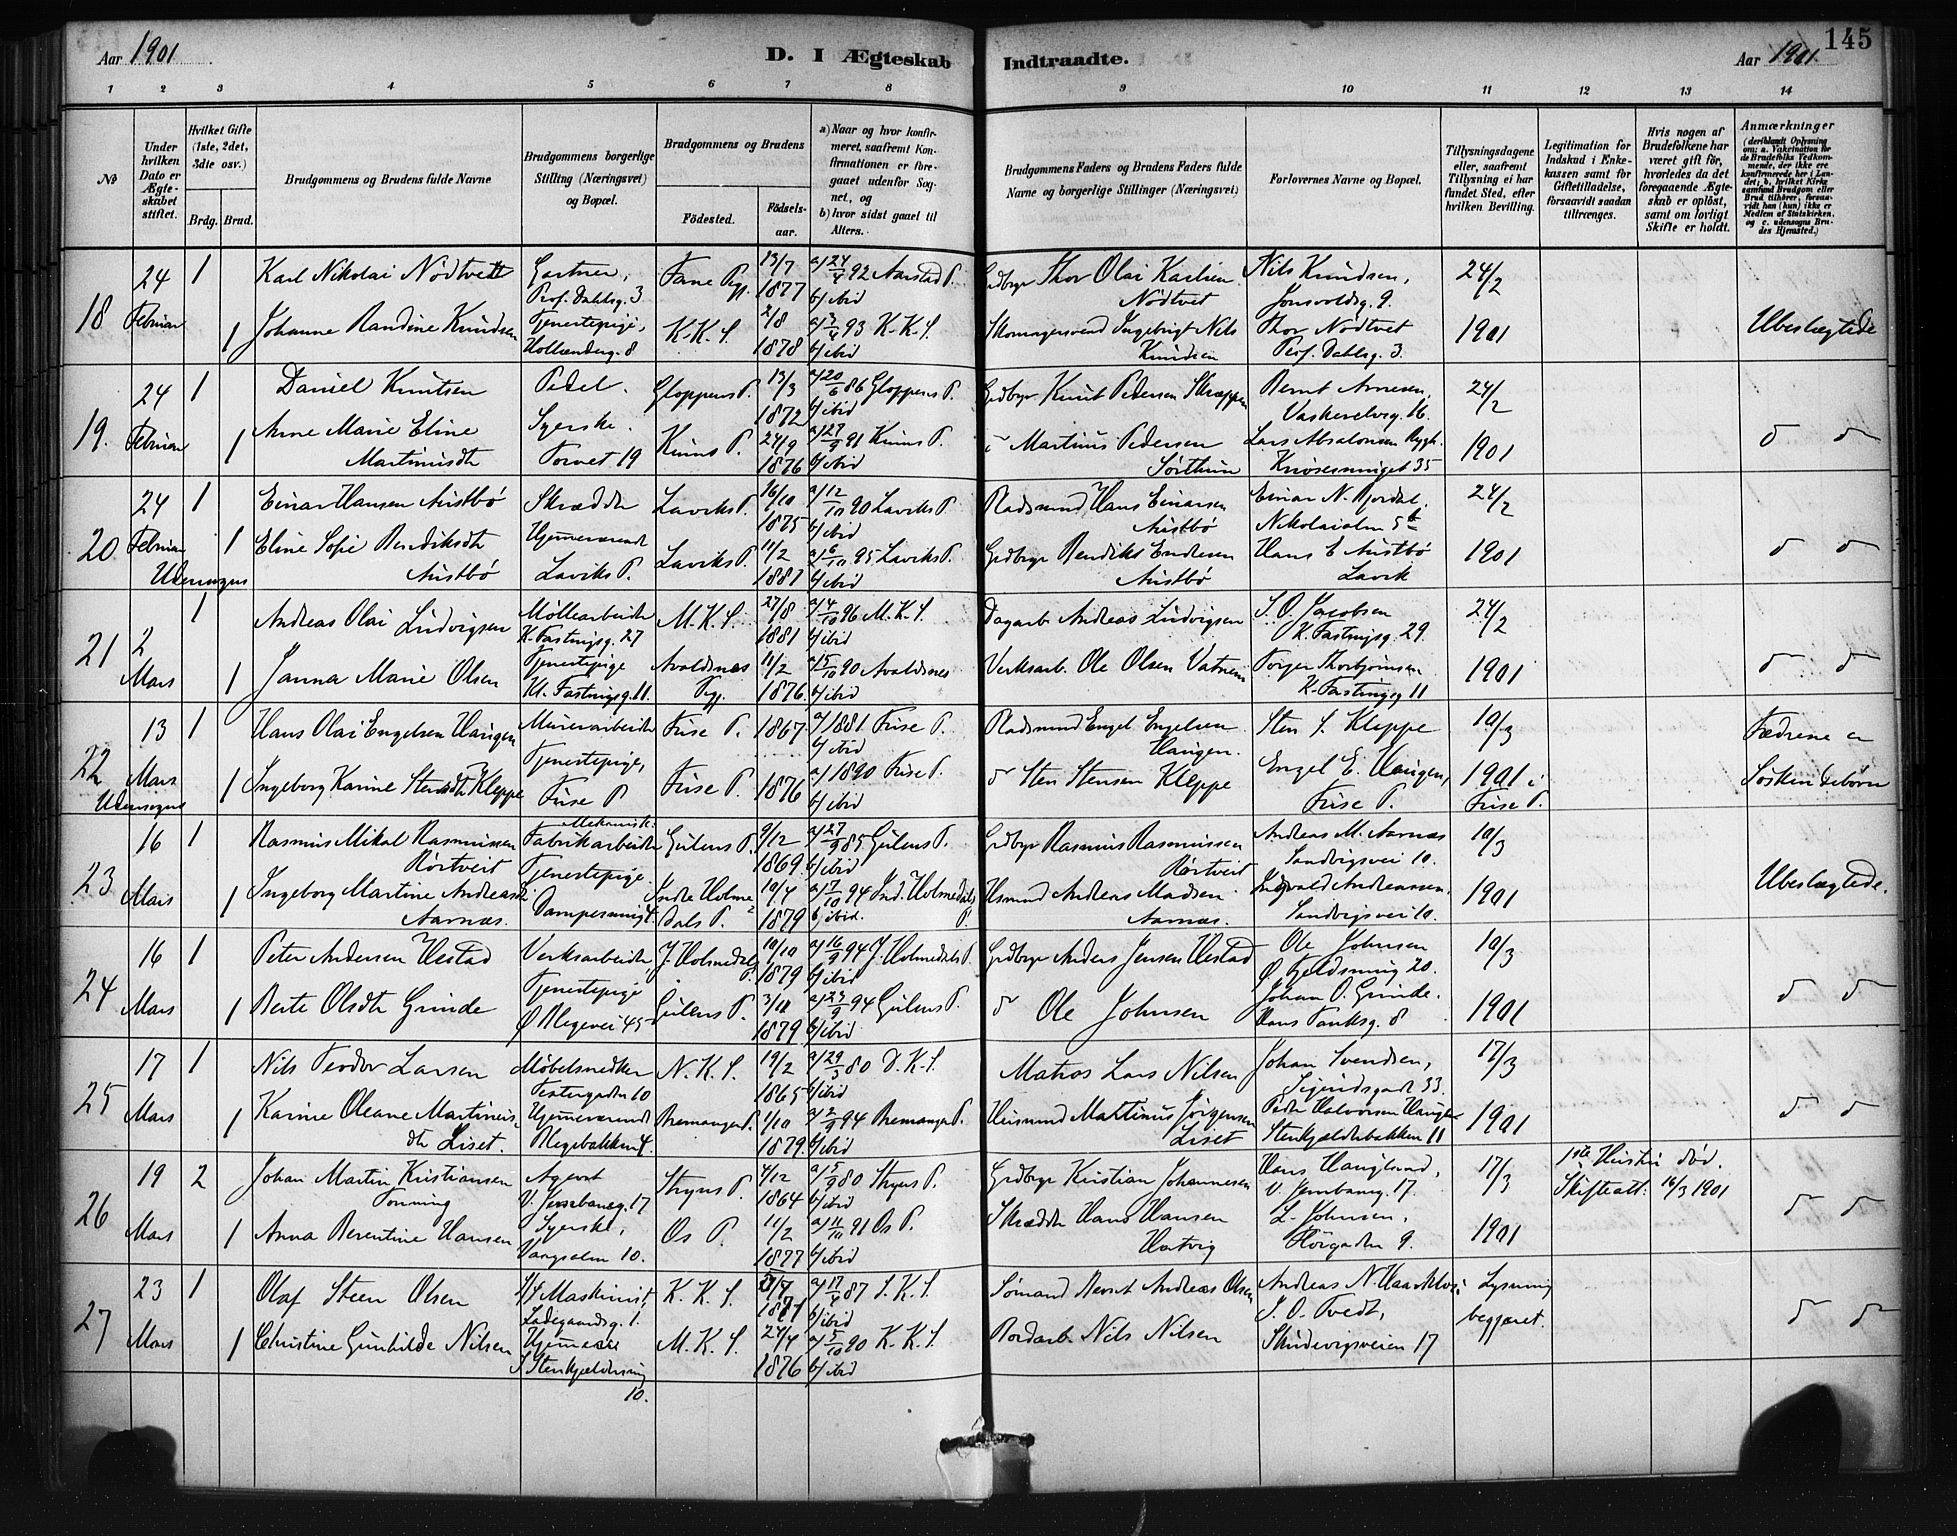 Aar 1901
D. I Ægteskab
Indtraadte.
Aar 1901.
145
1 2 3 4 5 6 7 8 9 10 11 12 13 14
№
Under hvilken Dato er Ægteskabet stiftet.
Hvilket Gifte (1ste, 2det, 3die osv.)
Brdg. Brud.
Brudgommens og Brudens fulde Navne
Brudgommens borgerlige Stilling (Næringsvei) og Bopæl.
Brudgommens og Brudens
Fødested.
Fødselsaar.
a) Naar og hvor konfirmeret, saafremt Konfirmationen er foregaaet udenfor Sognet, og
b) hvor sidst gaaet til Alters.
Brudgommens Faders og Brudens Faders fulde Navne og borgerlige Stillinger (Næringsvei)
Forlovernes Navne og Bopæl.
Tillysningsdagene eller, saafremt Tillysning ei har fundet Sted, efter hvilken Bevilling.
Legitimation for Indskud i Enkekassen samt for Giftetilladelse, forsaavidt saadan tiltrænges.
Hvis nogen af Brudefolkene har været gift før, hvorledes da det foregaaende Ægteskab er opløst, samt om lovligt Skifte er holdt.
Anmærkninger
(deriblandt Oplysning om: a. Vakcination for de Brudefolks Vedkommende, der ikke ere konfirmerede her i Landet; b. hvilket Kirkesamfund Brudgom eller Brud tilhører, forsaavidt han (hun) ikke er Medlem af Statskirken, og c. udensogns Brudes Hjemsted.)
18
24 Februar
1 Karl Nikolai Nødtvedt
Gartner, Prof. Dahlsg. 3
Fane Pgj.
13/7 1877
a) 24/4 92 Aarstad P. b) ibid
Grdbrgr Thor Olai Karlsen Nødtvet
Nils Knudsen, Jonsvoldsg. 9.
24/2
1 Johanne Randine Knudsen
Tjenestepige, Hollænderg. 8
K. K. S.
2/8 1878
a) 3/4 93 K. K. S. b) ibid
Skomagersvend Ingebrigt Nils Knudsen
Thor Nødtvet Prof. Dahlsg. 3.
1901
Ubeslægtede
19.
24 Februar
1 Daniel Knutsen
Pedel.
Gloppens P.
13/3 1872
a) 20/6 86 Gloppens P. b) ibid
Grdbrgr Knut Pedersen Skræppen
Bernt Arnesen, Vaskerelvsg. 16.
24/2
1 Anne Marie Eline Martinusdtr
Syerske. Torvet 19
Kinns P.
24/9 1876
a) 27/9 91 Kinns P. b) ibid
Martinus Pedersen Sørthun
Lars Absalonsen Knøsesmuget 35
1901
20
24 Februar
Udensogns
1 Einar Hansen Austbø
Skrædder
Laviks P.
16/10 1875
a) 12/10 90 Laviks P. b) ibid
Pladsmand Hans Einarsen Austbø
Einar N. Nikolaialm 5b
24/2
1 Eline Sofie Bendiksdtr Austbø
Hjemmeværende Laviks P.
Laviks P.
11/2 1881
a) 6/10 95 Laviks P. b) ibid
Grdbrgr Bendikt Endresen Austbø
Hans E Austbø Lavik
1901
21
2 Mars
1 Andreas Olai Ludvigsen
Møllearbeider K. Fastingsg. 27
M. K. S.
27/8 1881
a) 4/10 96 M. K. S. b) ibid
Dagarb. Andreas Ludvigsen
S. O. Jacobsen K. Fastingsg. 29.
24/2
1 Janna Marie Olsen
Tjenestepige Kl. Fastingsg. 11.
Avaldsnes Pgj.
11/2 1876
a) 5/10 90 Avaldsnes b) ibid
Verksarb. Ole Olsen Vatnem
Torger Thorbjørnsen K. Fastingsg 11
1901
22
13 Mars
Udensogns
1 Hans Olai Engelsen Haugen
Murerarbeider
Fuse P.
1867
a) 1881 Fuse P. b) ibid
Pladsmand Engel Engelsen Haugen.
Sten S. Kleppe
10/3
1 Ingeborg Karine Stensdtr Kleppe
Tjenestepige, Fuse P
Fuse P.
1876
a) 1890 Fuse P. b) ibid
Sten Stensen Kleppe
Engel E. Haugen, Fuse P.
1901 i Fuse P.
Fædrene er Søskendebørn
23
16 Mars
1 Rasmus Mikal Rasmussen Rørtveit
Mekanisk Fabrikarbeider
Gulens P.
9/12 1869
a) 27/9 85 Gulens P. b) ibid
Grdbrgr Rasmus Rasmussen Rørtveit
Andreas M. Aarnæs Sandvigsvei 10.
10/3
1 Ingeborg Martine Andreasdtr Aarnæs.
Tjenestepige. Dampesmug 4.
Indre Holmedals P.
10/4 1879
a) 7/10 94 Ind. Holmedals P. b) ibid.
Husmand Andreas Madsen Aarnæs.
Ingvald Andreassen, Sandvigsvei 10.
1901
Ubeslægtede.
24
16 Mars
1 Peter Andersen Hestad
Verksarbeider
J. Holmedals P.
10/10 1879
a) 16/9 94 J. Holmedals P. b) ibid
Grdbrgr Anders Jensen Hestad
Ole Johnsen Ø. Fjeldsmug 20.
10/3
1 Berte Olsdtr Grinde
Tjenestepige Ø Blegevei 45
Gulens P.
3/11 1879
a) 23/9 94 Gulens P. b) ibid
Ole Johnsen
Johan O. Grinde. Hans Tanksg. 8
1901
25
17 Mars
1 Nils Teodor Larsen
Møbelsnedker Teatergaden 10
N. K. S.
19/2 1865
a) 29/3 80 D. K. S. b) ibid
Matros Lars Nilsen
Johan Svendsen, Sigurdsgade 33.
17/3
1 Karine Oleane Martinusdtr Liset.
Hjemmeværende Blegebakken 4.
Bremanger P.
1/10 1879
a) 2/9 94 Bremanger P. b) ibid
Husmand Martinus Jørgensen Liset
Peder Halvorsen Haugen Stenkjælderbakken 11
1901
26
19 Mars
2 Johan Martin Kristiansen Tonning
Agent V. Jernbaneg. 17
Stryns P.
4/12 1864
a) 5/9 80 Stryns P. b) ibid
Grdbrgr Kristian Johannesen
Hans Haugland, V. Jernbaneg. 17.
17/3
1ste Hustru død. Skifteatt: 16/3 1901
1 Anna Berentine Hansen
Syerske, Vaagsalm 10.
Os P.
11/2 1877
a) 11/10 91 Os P. b) ibid
Skrædder Hans Hansen Hatvig
L. Johnsen, 9.
1901
27
23 Mars
1 Olaf Steen Olsen
Maskinist, Ladegaardsg. 1.
K. K. S.
a) 17/4 87 S. K. S. b) ibid
Sømand Bernt Andreas Olsen
Andreas N.
Lysning begjæret.
1 Christine Gunhilde Nilsen
Hjemme S. Stenkjældersmug 10.
M. K. S.
24/4 1876
a) 5/10 90 K. K. S. b) ibid
Bordarb. Nils Nilsen
S. O. Tvedt, Skudevigsveien 17